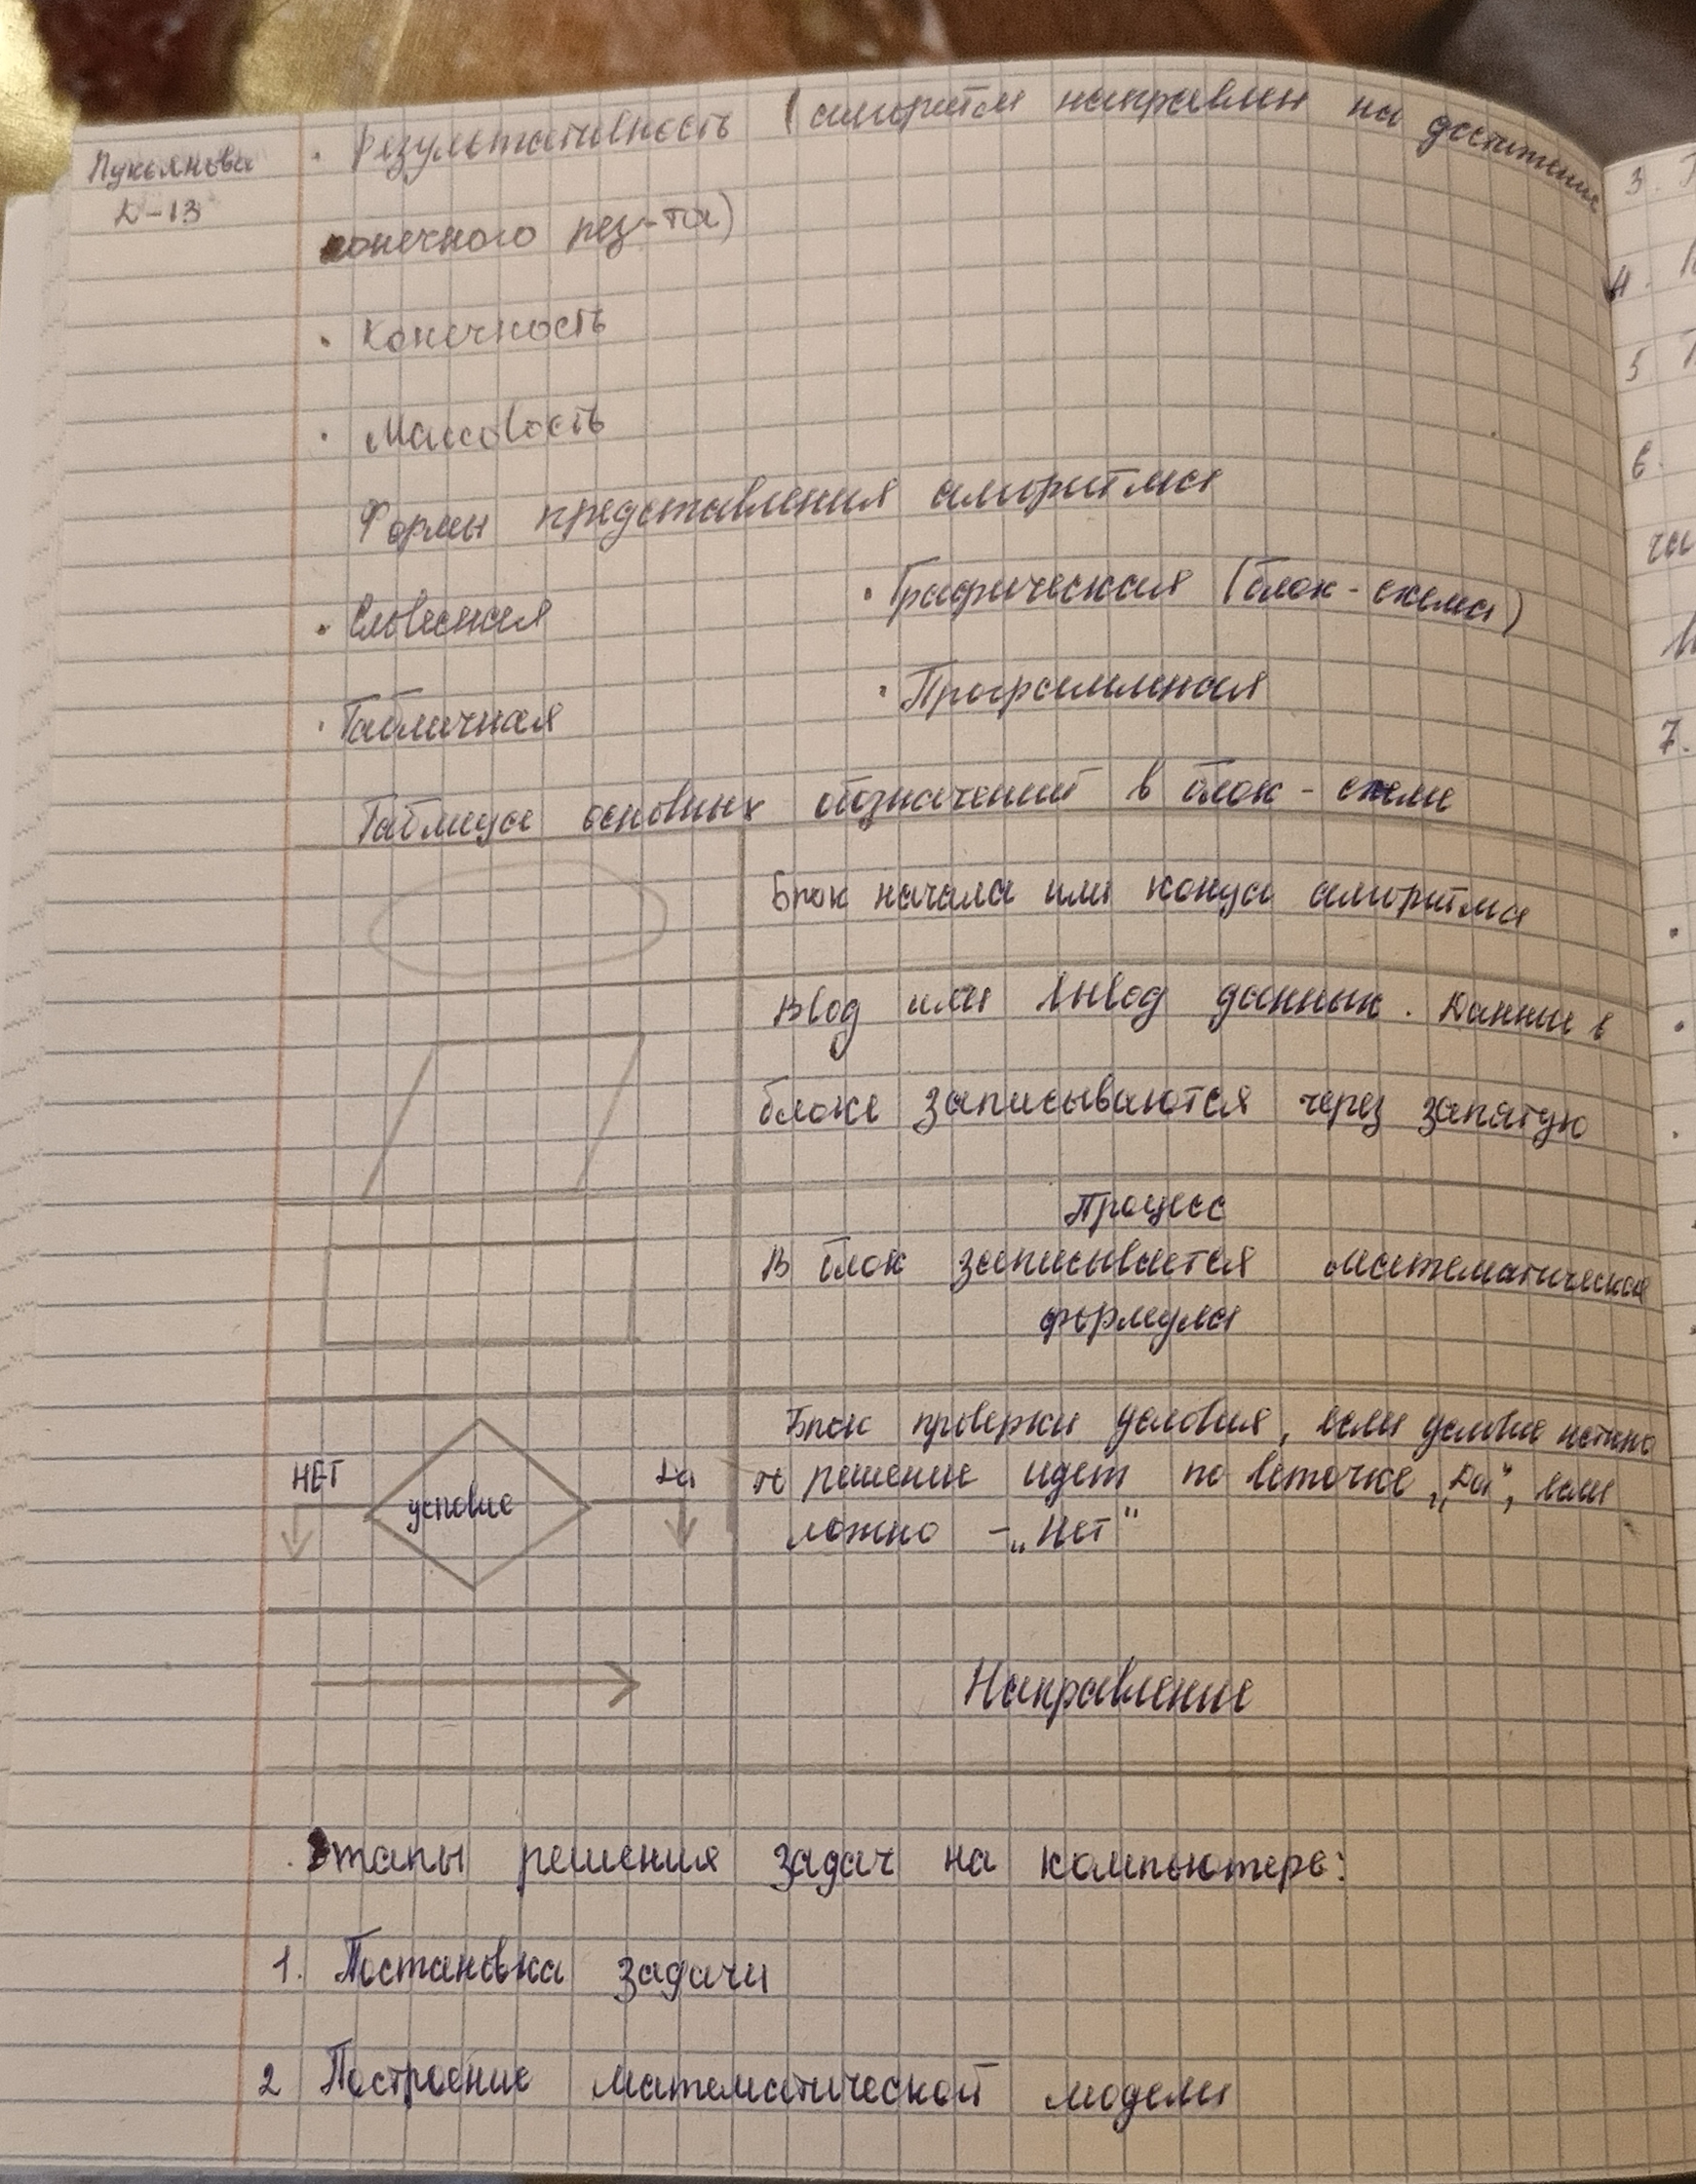 Лукьянова
Д-13
· Результативность (алгоритм направлен на достижение
конечного рез-та)
· Конечность
· Массовость
Формы представления алгоритма
· Словесная · Графическая (блок-схема)
· Табличная · Программная
Таблица основных обозначений в блок-схеме
Блок начала или конца алгоритма
Ввод или вывод данных. Данные в
блоке записываются через запятую
Процесс
В блок записывается математическая
формула
Блок проверки условия, если условие истино
НЕТ Да то решение идет по веточке „Да“, если
условие
ложно - „Нет“
Направление
Этапы решения задач на компьютере:
1. Постановка задачи
2 Построение математической модели
3.
4.
5
6.
7.